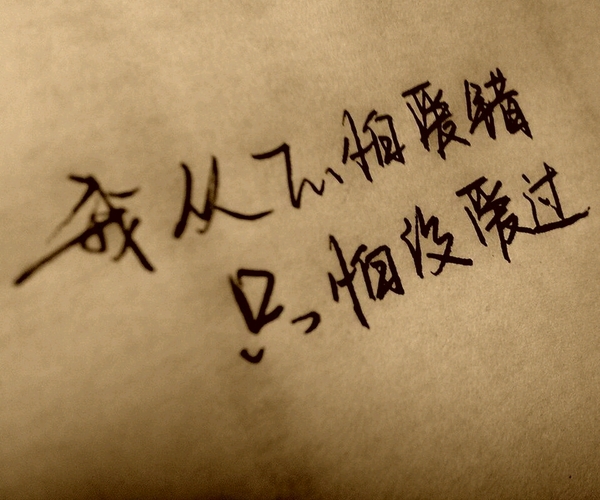 我从不怕爱错
只怕没爱过